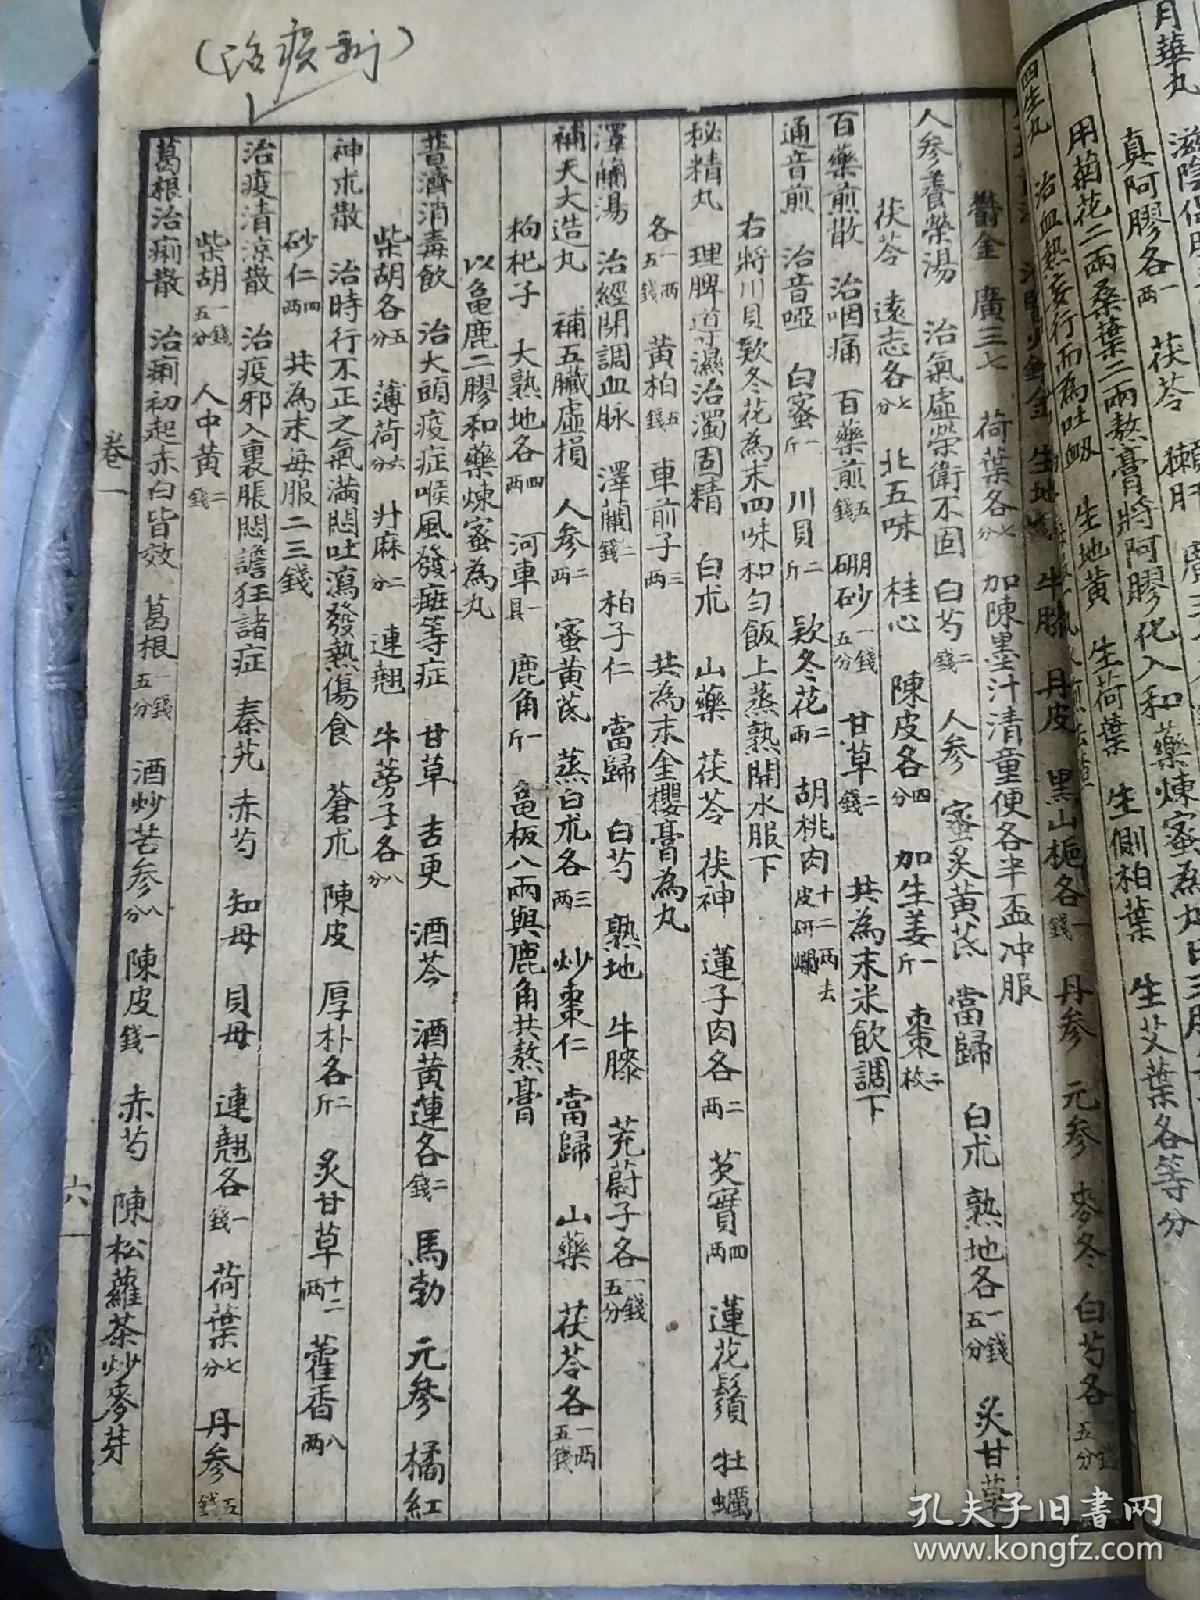 (治疫新)
月華丸 滋陰保肺
真阿膠各一兩 茯苓 獺肝
用菊花二兩桑葉二兩熬膏將阿膠化入和藥煉蜜為丸
四生丸 治血熱妄行而為吐衄 生地黃 生荷葉 生側柏葉 生艾葉各等分
生地 牛膝 丹皮 黑山梔各一錢 丹參 元參 麥冬 白芍各一錢五分
鬱金 廣三七 荷葉各七分 加陳墨汁清童便各半盃冲服
人參養榮湯 治氣虛榮衛不固 白芍二錢 人參 蜜炙黃芪 當歸 白朮 熟地各一錢五分 炙甘草
茯苓 遠志各七分 北五味 桂心 陳皮各四分 加生姜一斤 棗二枚
百藥煎散 治咽痛 百藥煎五錢 硼砂一錢五分 甘草二錢 共為末米飲調下
通音煎 治音啞 白蜜一斤 川貝二斤 欵冬花二兩 胡桃肉十二兩去皮研爛
右將川貝欵冬花為末四味和勻飯上蒸熟開水服下
秘精丸 理脾導濕治濁固精 白朮 山藥 茯苓 茯神 蓮子肉各二兩 芡實四兩 蓮花鬚 牡蠣
各一兩五錢 黃柏五錢 車前子三兩 共為末金櫻膏為丸
澤蘭湯 治經閉調血脉 澤蘭二錢 柏子仁 當歸 白芍 熟地 牛膝 茺蔚子各一錢五分
補天大造丸 補五臟虛損 人參二兩 蜜黃芪 蒸白朮各三兩 炒棗仁 當歸 山藥 茯苓各一兩五錢
枸杞子 大熟地各四兩 河車一具 鹿角一斤 龜板八兩與鹿角共熬膏
以龜鹿二膠和藥煉蜜為丸
普濟消毒飲 治大頭疫症喉風發癍等症 甘草 吉更 酒芩 酒黃連各二錢 馬勃 元參 橘紅
柴胡各五分 薄荷六分 升麻二分 連翹 牛蒡子各八分
神朮散 治時行不正之氣滿悶吐瀉發熱傷食 蒼朮 陳皮 厚朴各二斤 炙甘草十二兩 藿香八兩
砂仁四兩 共為末每服二三錢
治疫清涼散 治疫邪入裏脹悶譫狂諸症 秦艽 赤芍 知母 貝母 連翹各一錢 荷葉七分 丹參五錢
柴胡一錢五分 人中黃二錢
葛根治痢散 治痢初起赤白皆效 葛根一錢五分 酒炒苦參八分 陳皮一錢 赤芍 陳松蘿茶炒麥芽
卷一
六
孔夫子旧書网
www.kongfz.com